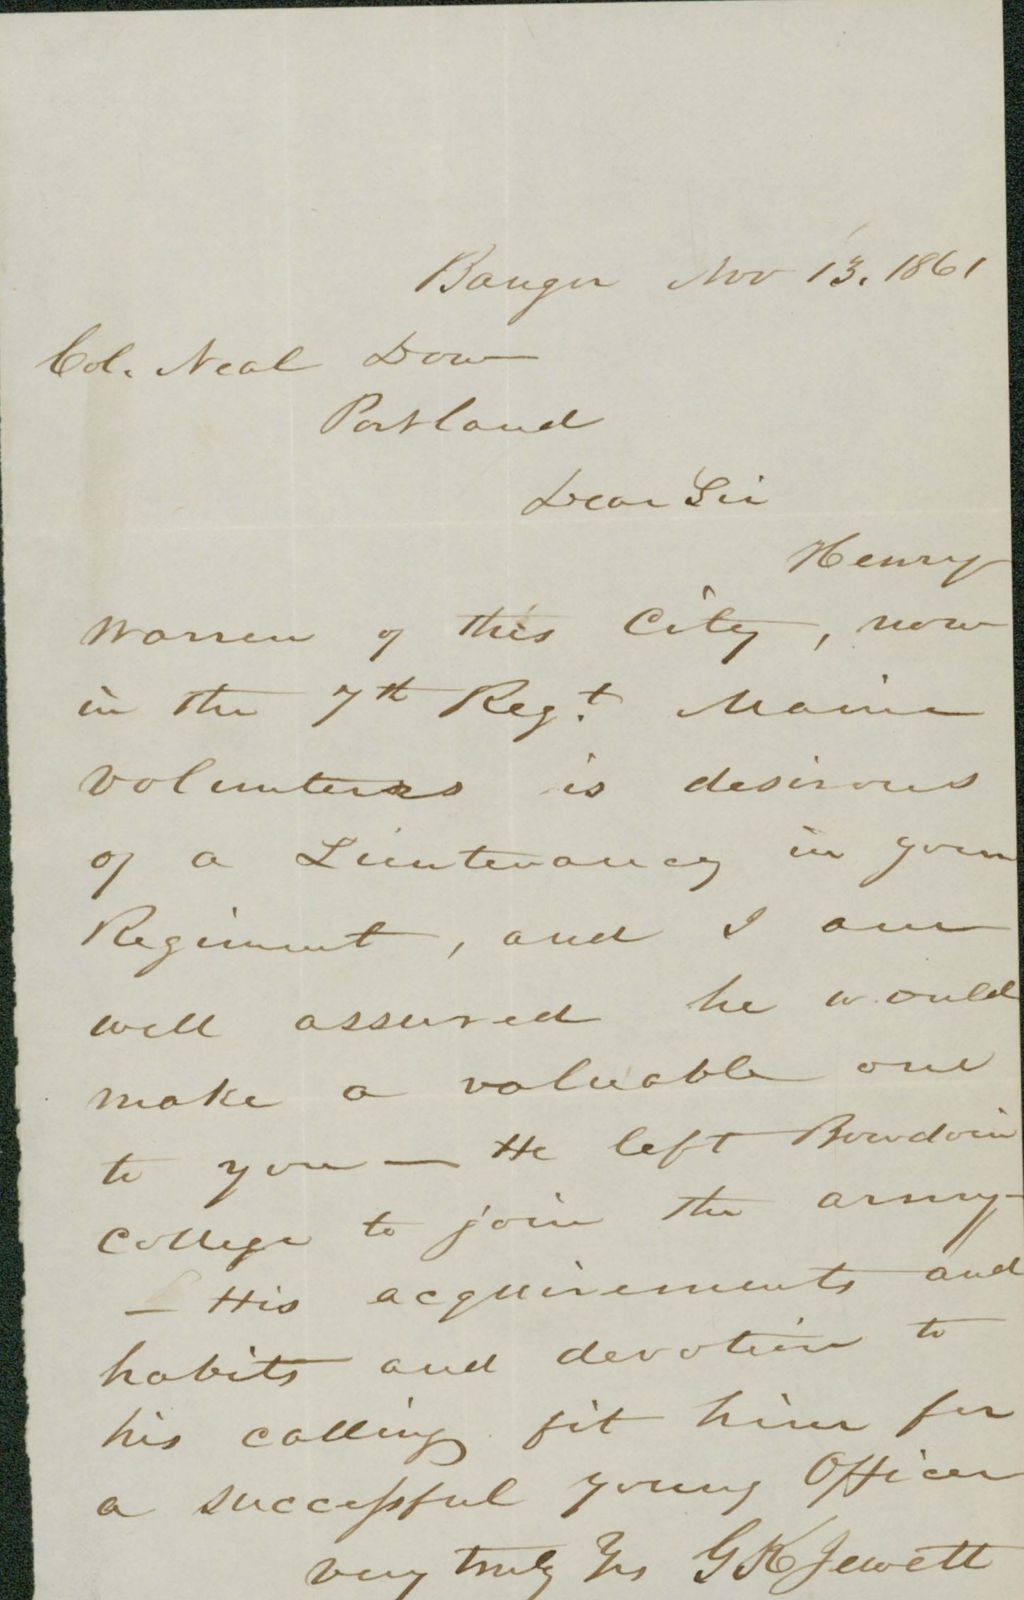 Bangor Nov 13. 1861
Col. Neal Dow
Portland
Dear Sir
Henry
Warren of this City, now
in the 7th Regt. Maine
volunteers is desirous
of a Lieutenancy in your
Regiment, and I am
well assured he would
make a valuable one
to you — He left Bowdoin
College to join the army—
— His acquirements and
habits and devotion to
his calling fit him for
a successful young Officer
very truly Yrs G K Jewett